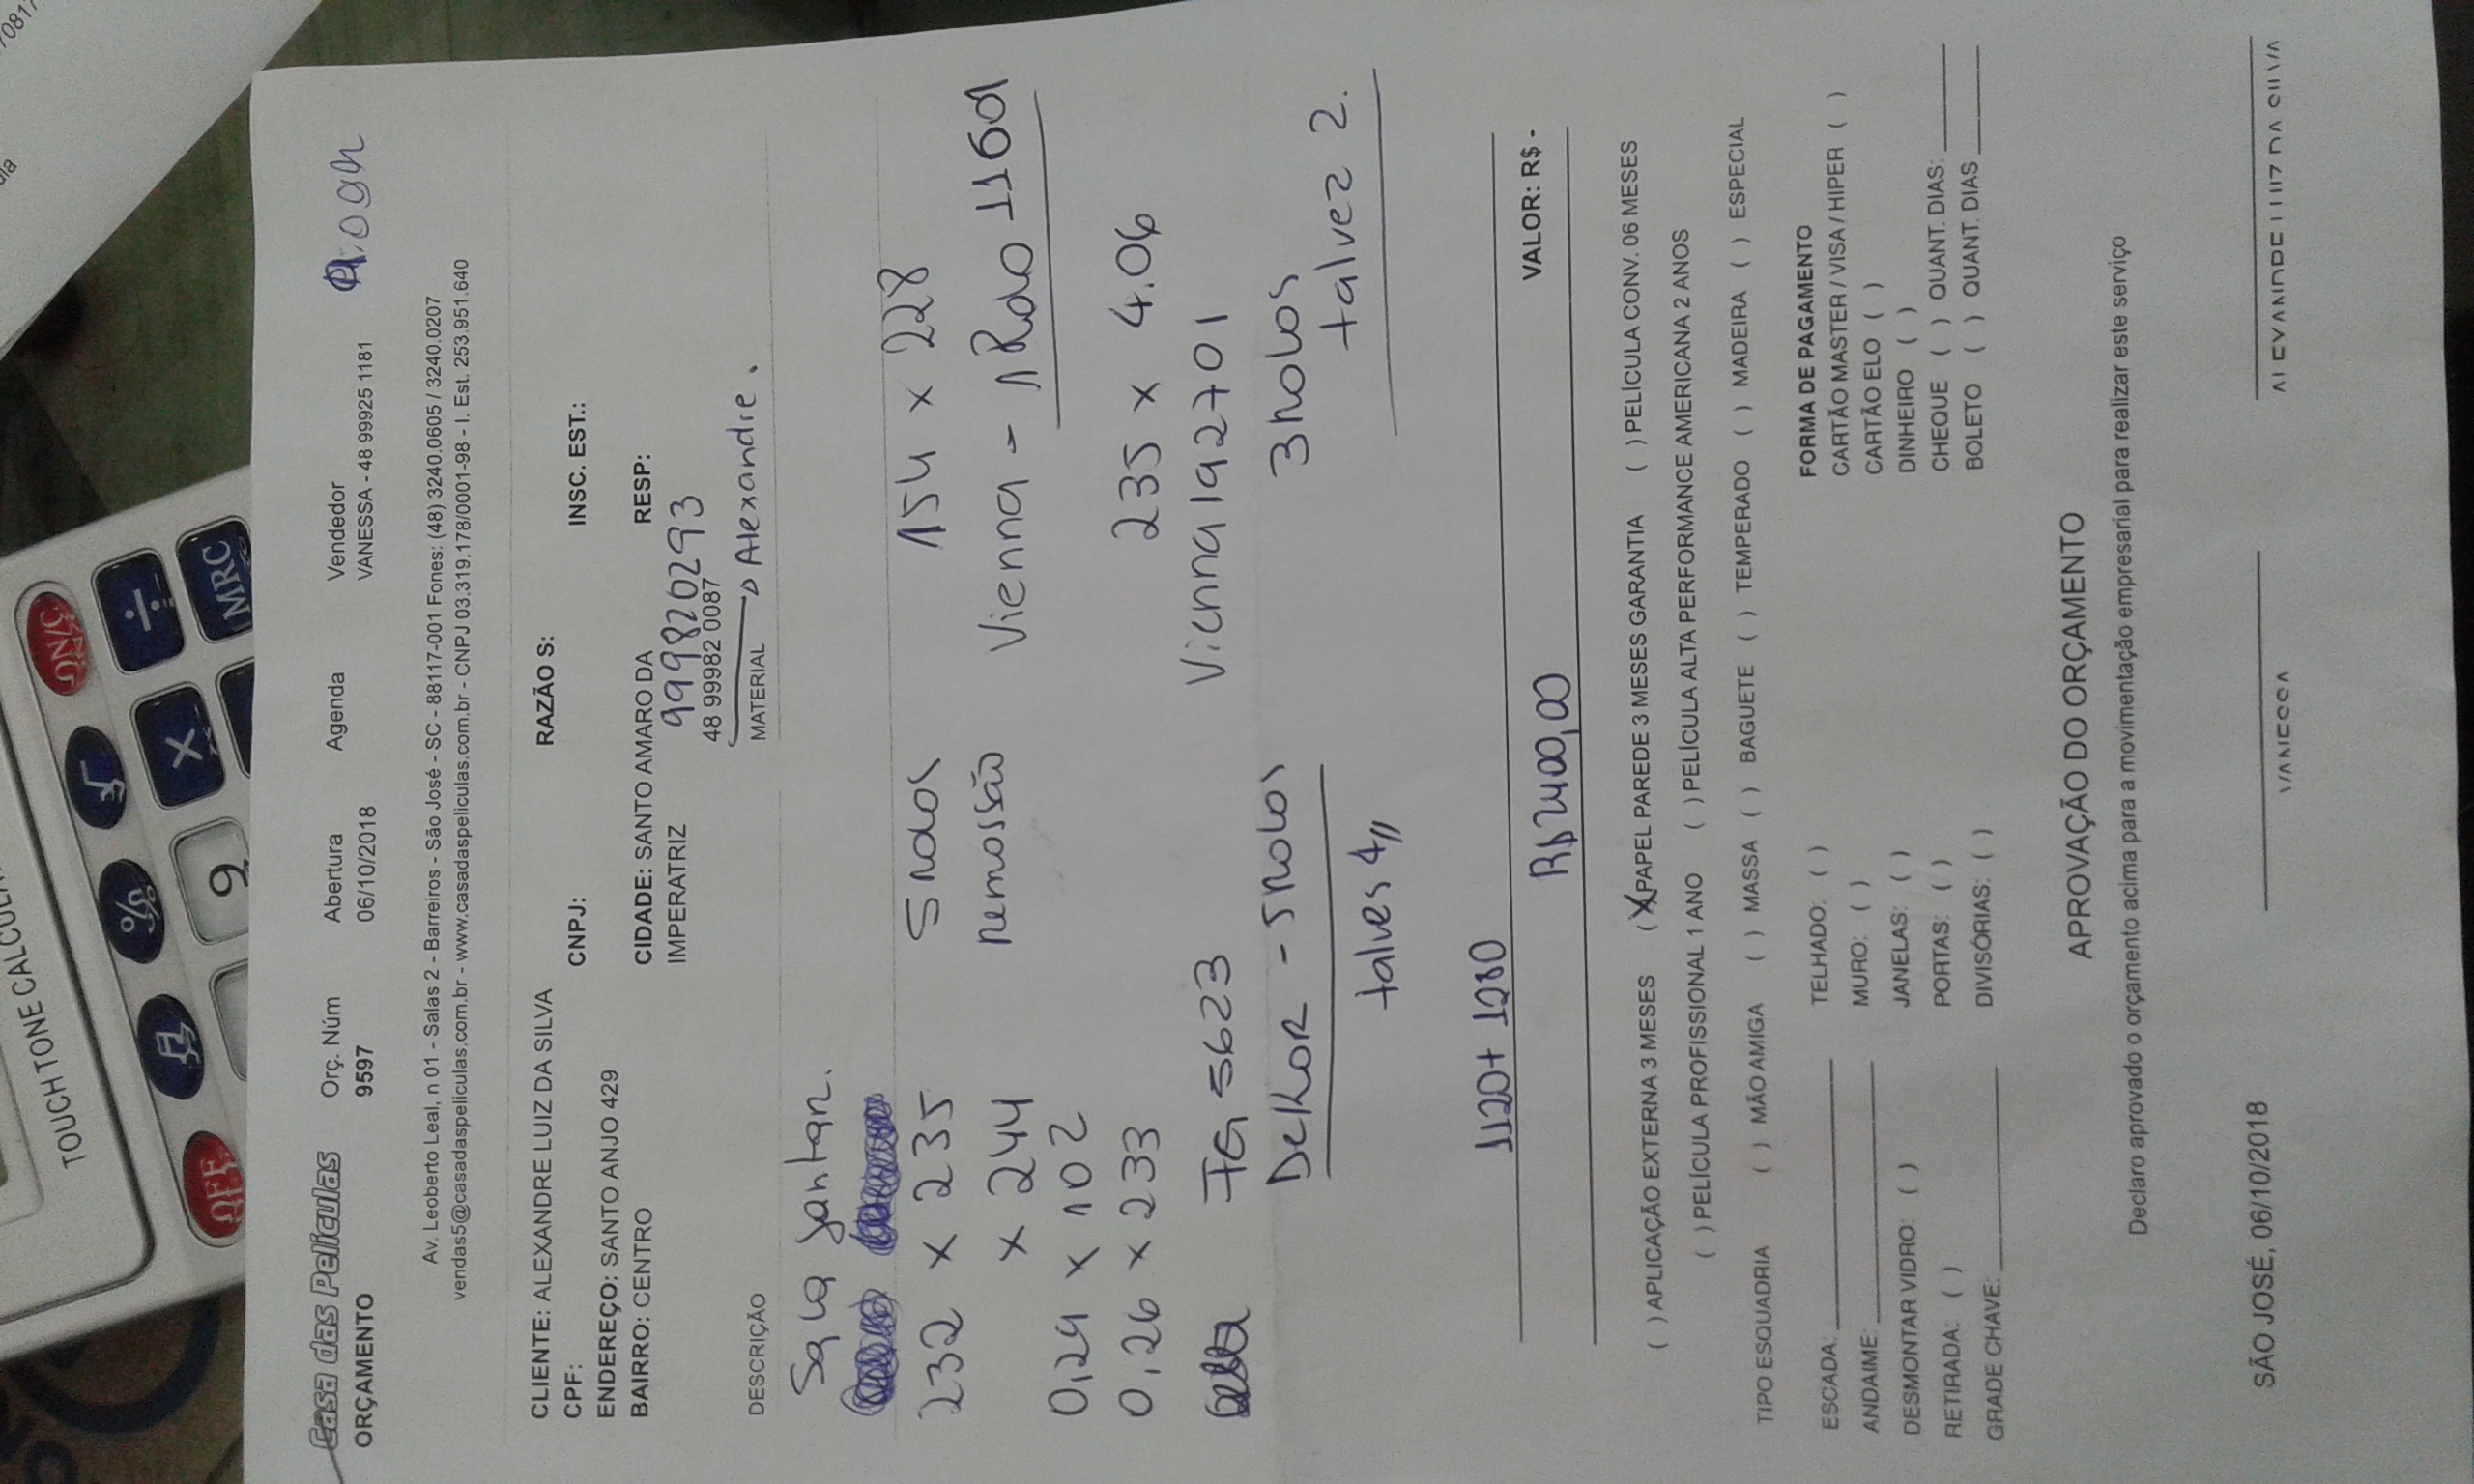 TOUCH TONE CALCUL
OFF
%
√
ON/C
9
×
÷
MRC
Casa das Películas
ORÇAMENTO
Orç. Núm
9597
Abertura
06/10/2018
Agenda
Vendedor
VANESSA - 48 99925 1181
Av. Leoberto Leal, n 01 - Salas 2 - Barreiros - São José - SC - 88117-001 Fones: (48) 3240.0605 / 3240.0207
vendas5@casadaspeliculas.com.br - www.casadaspeliculas.com.br - CNPJ 03.319.178/0001-98 - I. Est. 253.951.640
CLIENTE: ALEXANDRE LUIZ DA SILVA RAZÃO S:
CPF: CNPJ: INSC. EST.:
ENDEREÇO: SANTO ANJO 429
BAIRRO: CENTRO CIDADE: SANTO AMARO DA RESP:
IMPERATRIZ 999820293
48 99982 0087
DESCRIÇÃO MATERIAL → Alexandre.
Sala Jantar.
232 x 235 5 rolos 154 x 228
x 244 remossão Vienna - 1 Rolo 11601
0,29 x 102
0,26 x 233 235 x 4.06
FG 5623 Vienna 192701
Dekor - 5 rolos 3 rolos
talves 4// talvez 2.
1120 + 1280
R$ 2400,00 VALOR: R$ -
( ) APLICAÇÃO EXTERNA 3 MESES (X) PAPEL PAREDE 3 MESES GARANTIA ( ) PELÍCULA CONV. 06 MESES
( ) PELÍCULA PROFISSIONAL 1 ANO ( ) PELÍCULA ALTA PERFORMANCE AMERICANA 2 ANOS
TIPO ESQUADRIA ( ) MÃO AMIGA ( ) MASSA ( ) BAGUETE ( ) TEMPERADO ( ) MADEIRA ( ) ESPECIAL
ESCADA: TELHADO: ( ) FORMA DE PAGAMENTO
ANDAIME: MURO: ( ) CARTÃO MASTER / VISA / HIPER ( )
DESMONTAR VIDRO: ( ) JANELAS: ( ) CARTÃO ELO ( )
RETIRADA: ( ) PORTAS: ( ) DINHEIRO ( )
GRADE CHAVE: DIVISÓRIAS: ( ) CHEQUE ( ) QUANT. DIAS:
BOLETO ( ) QUANT. DIAS
APROVAÇÃO DO ORÇAMENTO
Declaro aprovado o orçamento acima para a movimentação empresarial para realizar este serviço
SÃO JOSÉ, 06/10/2018
VANESSA
ALEXANDRE LUIZ DA SILVA